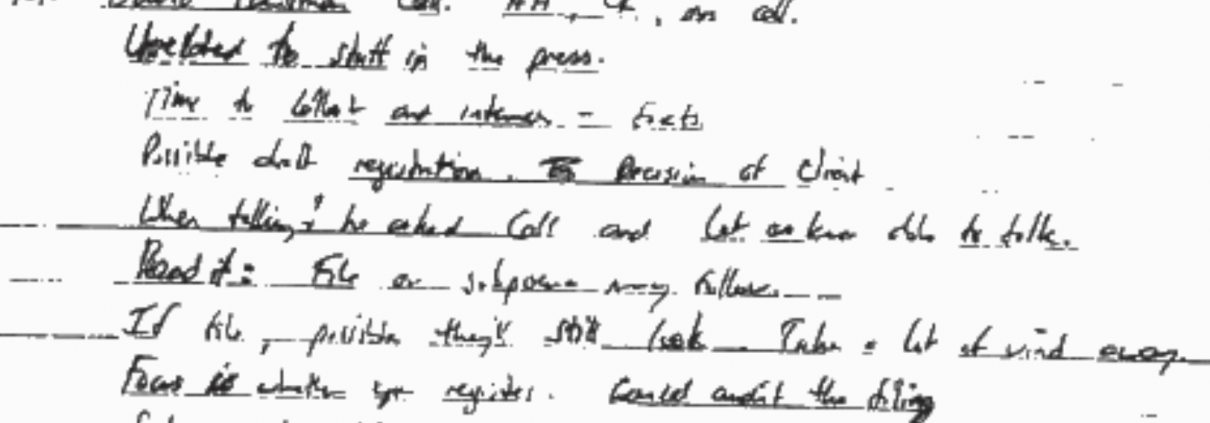 Call. on call.
Unrelated to stuff in the press.
Time to collect and interview - facts
Possible draft registration. Decision of Client
When talking, he asked Call and let us know able to talk.
Read it: File or subpoena may follow.
If file, possible they'll still look. Takes a lot of wind away.
Focus is whether you register. Could audit the filing